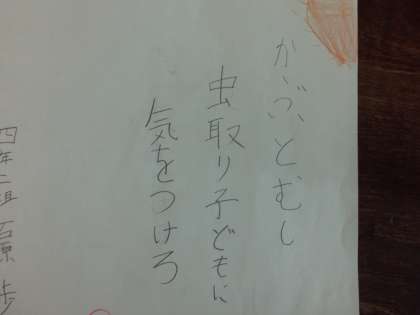 かぶとむし
虫取り子どもに
気をつけろ
四年二組 石原 歩